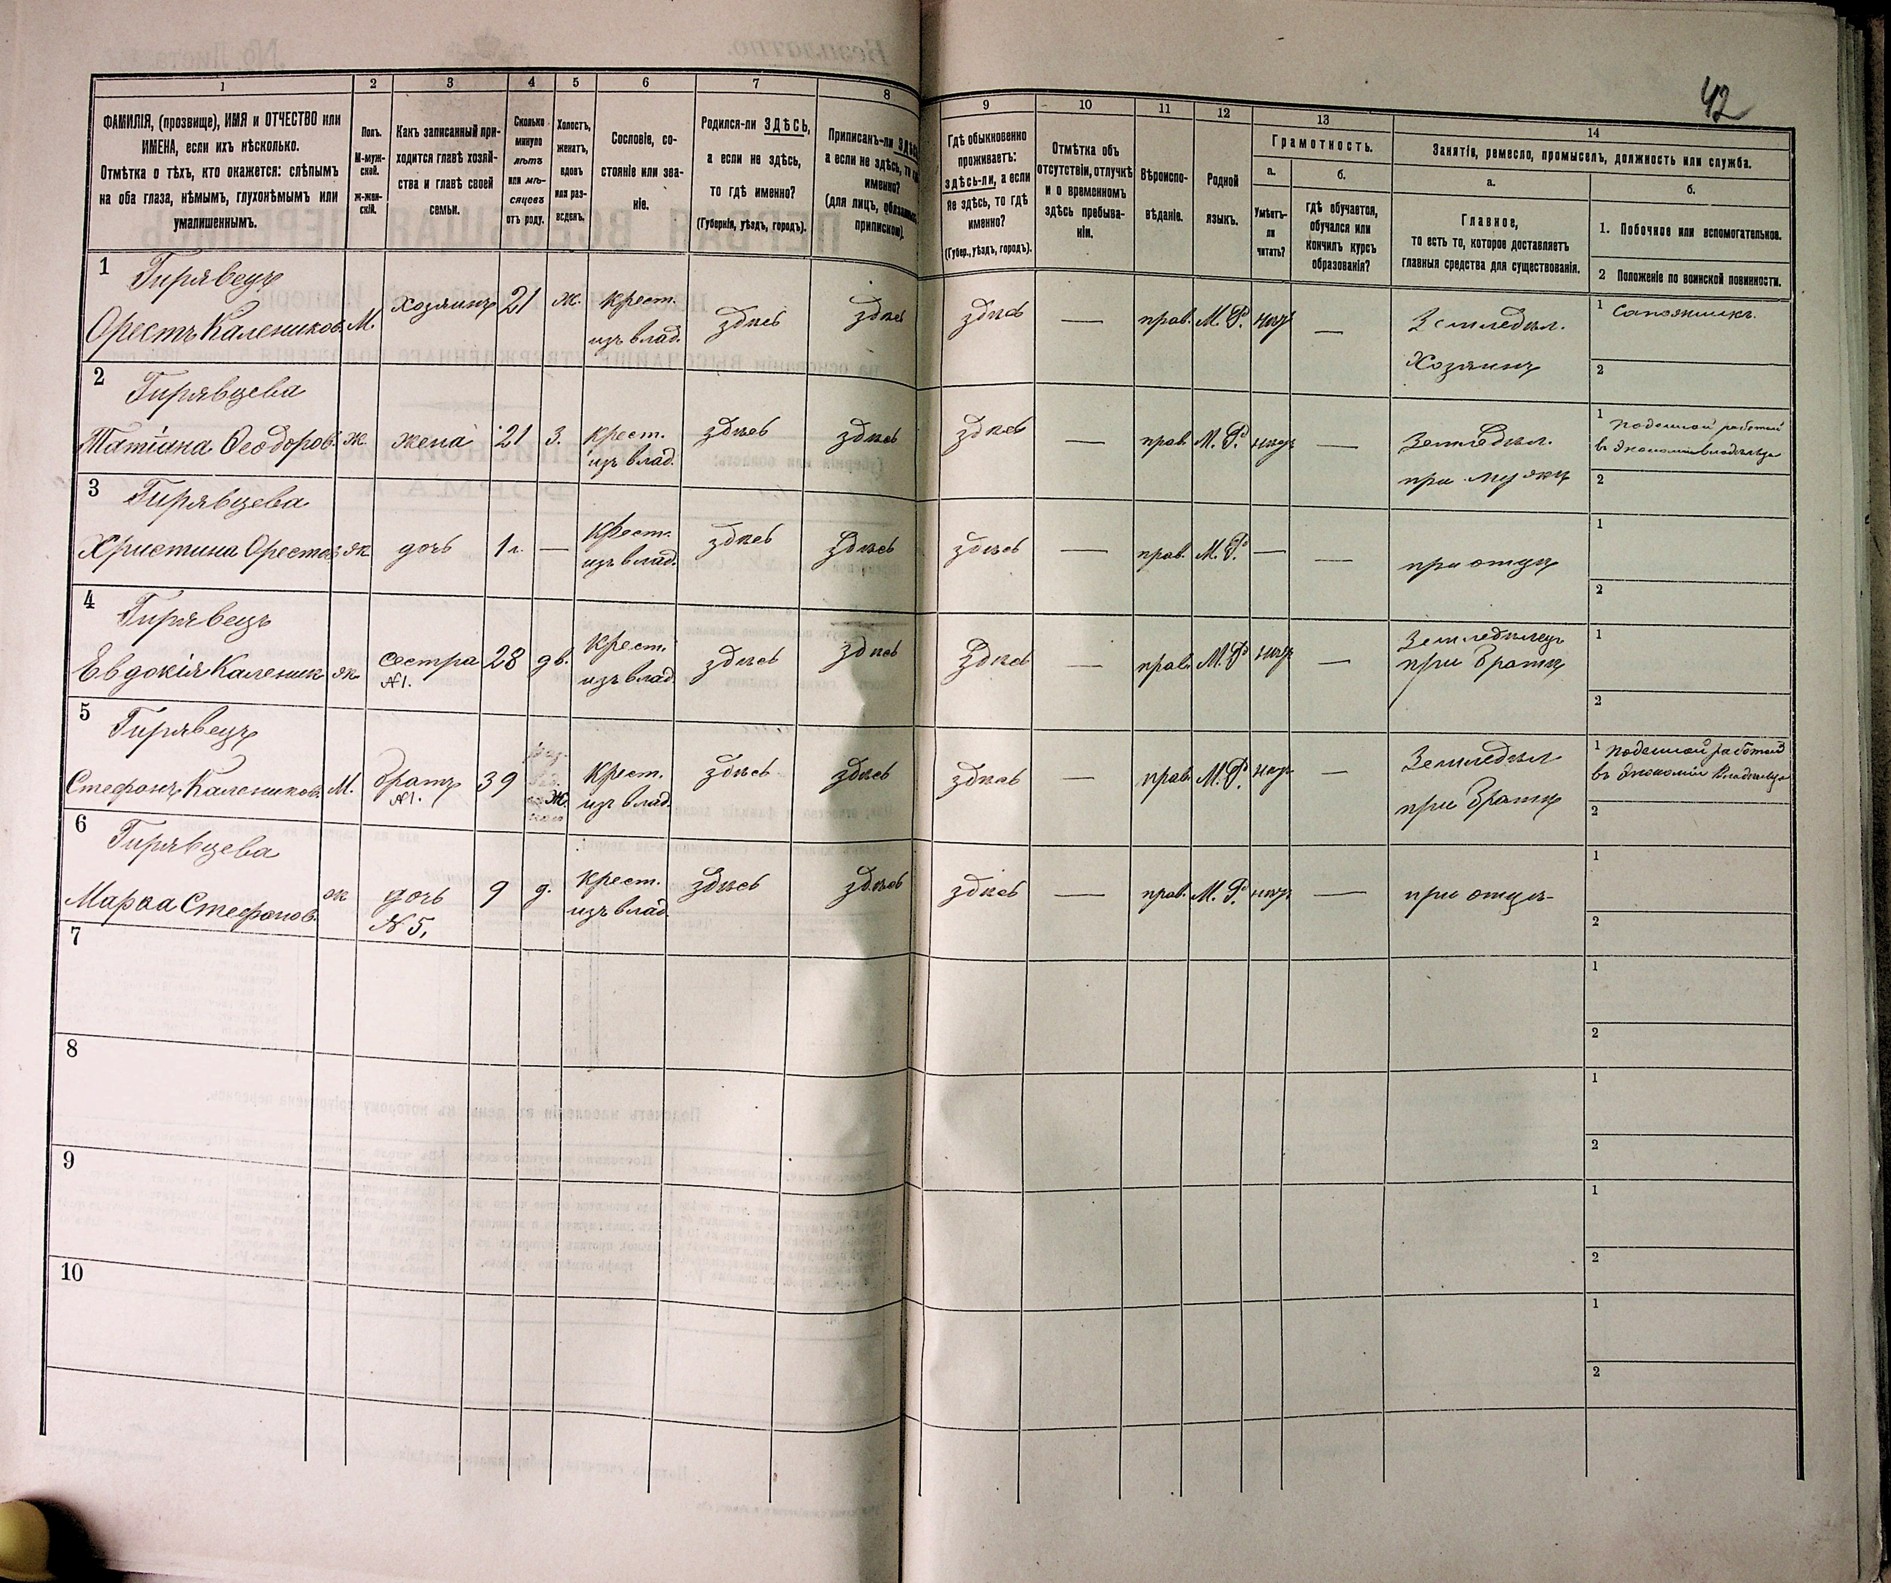 42
1
2
3
4
5
6
7
8
9
10
11
12
13
14
ФАМИЛІЯ, (прозвище), ИМЯ и ОТЧЕСТВО или
ИМЕНА, если ихъ нѣсколько.
Отмѣтка о тѣхъ, кто окажется: слѣпымъ
на оба глаза, нѣмымъ, глухонѣмымъ или
умалишеннымъ.
Полъ.
М-муж-
ской.
ж-жен-
скій.
Какъ записанный при-
ходится главѣ хозяй-
ства и главѣ своей
семьи.
Сколько
минуло
лѣтъ
или мѣ-
сяцевъ
отъ роду.
Холостъ,
женатъ,
вдовъ
или раз-
веденъ.
Сословіе, со-
стояніе или зва-
ніе.
Родился-ли ЗДѢСЬ,
а если не здѣсь,
то гдѣ именно?
(Губернія, уѣздъ, городъ).
Приписанъ-ли
а если не здѣсь, то
именно?
(для лицъ,
припискою).
Гдѣ обыкновенно
проживаетъ:
здѣсь-ли, а если
не здѣсь, то гдѣ
именно?
(Губер., уѣздъ, городъ).
Отмѣтка объ
отсутствіи, отлучкѣ
и о временномъ
здѣсь пребыва-
ніи.
Вѣроиспо-
вѣданіе.
Родной
языкъ.
Грамотность.
а.
б.
Умѣетъ-
ли
читать?
гдѣ обучается,
обучался или
кончилъ курсъ
образованія?
Занятія, ремесло, промыселъ, должность или служба.
а.
б.
Главное,
то есть то, которое доставляетъ
главныя средства для существованія.
1. Побочное или вспомогательное.
2 Положеніе по воинской повинности.
1
Гирявецъ
хозяинъ 21 ж. крест.
Орестъ Калеников. М.
изъ влад.
здѣсь
здѣсь
здѣсь — прав. М. Р. нѣтъ — Земледѣл.
Хозяинъ
1 Сапожникъ.
2
2
Гирявцева
Татіана Ѳеодоров. ж. жена 21 з. крест.
изъ влад.
здѣсь
здѣсь
здѣсь — прав. М. Р. нѣтъ — Земледѣл.
при мужѣ
1 поденной работой
въ экономіи владѣльца
2
3
Гирявцева
Христина Орестов. ж. дочь 1 г. — крест.
изъ влад.
здѣсь
здѣсь
здѣсь — прав. М. Р. — — при отцѣ
1
2
4
Гирявецъ
Евдокія Каленик. ж. сестра 28 дв. крест.
№1.
изъ влад.
здѣсь
здѣсь
здѣсь — прав. М. Р. нѣтъ — Земледѣлецъ
при братѣ
1
2
5
Гирявецъ
Стефанъ Калеников. М. братъ 39 ж. крест.
№1.
изъ влад.
здѣсь
здѣсь
здѣсь — прав. М. Р. нѣтъ — Земледѣл
при братѣ
1 поденной работой
въ экономіи владѣльца
2
6
Гирявцева
Марѳа Стефанов. ж дочь 9 д. крест.
№ 5,
изъ влад
здѣсь
здѣсь
здѣсь — прав. М. Р. нѣтъ — при отцѣ
1
2
7
1
2
8
1
2
9
1
2
10
1
2